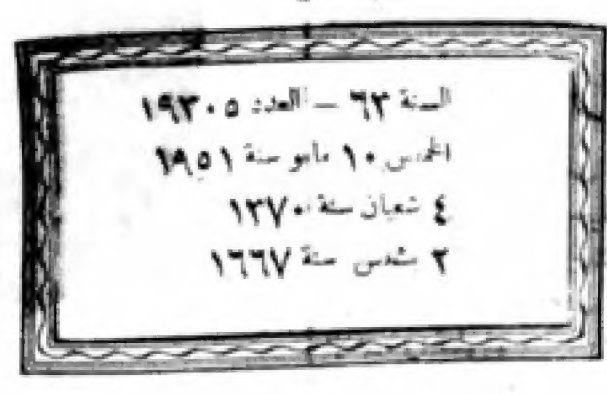 السنة ٦٣ – العدد ١٩٣٠٥
الخميس ١٠ مايو سنة ١٩٥١
٤ شعبان سنة ١٣٧٠
٢ بشنس سنة ١٦٦٧